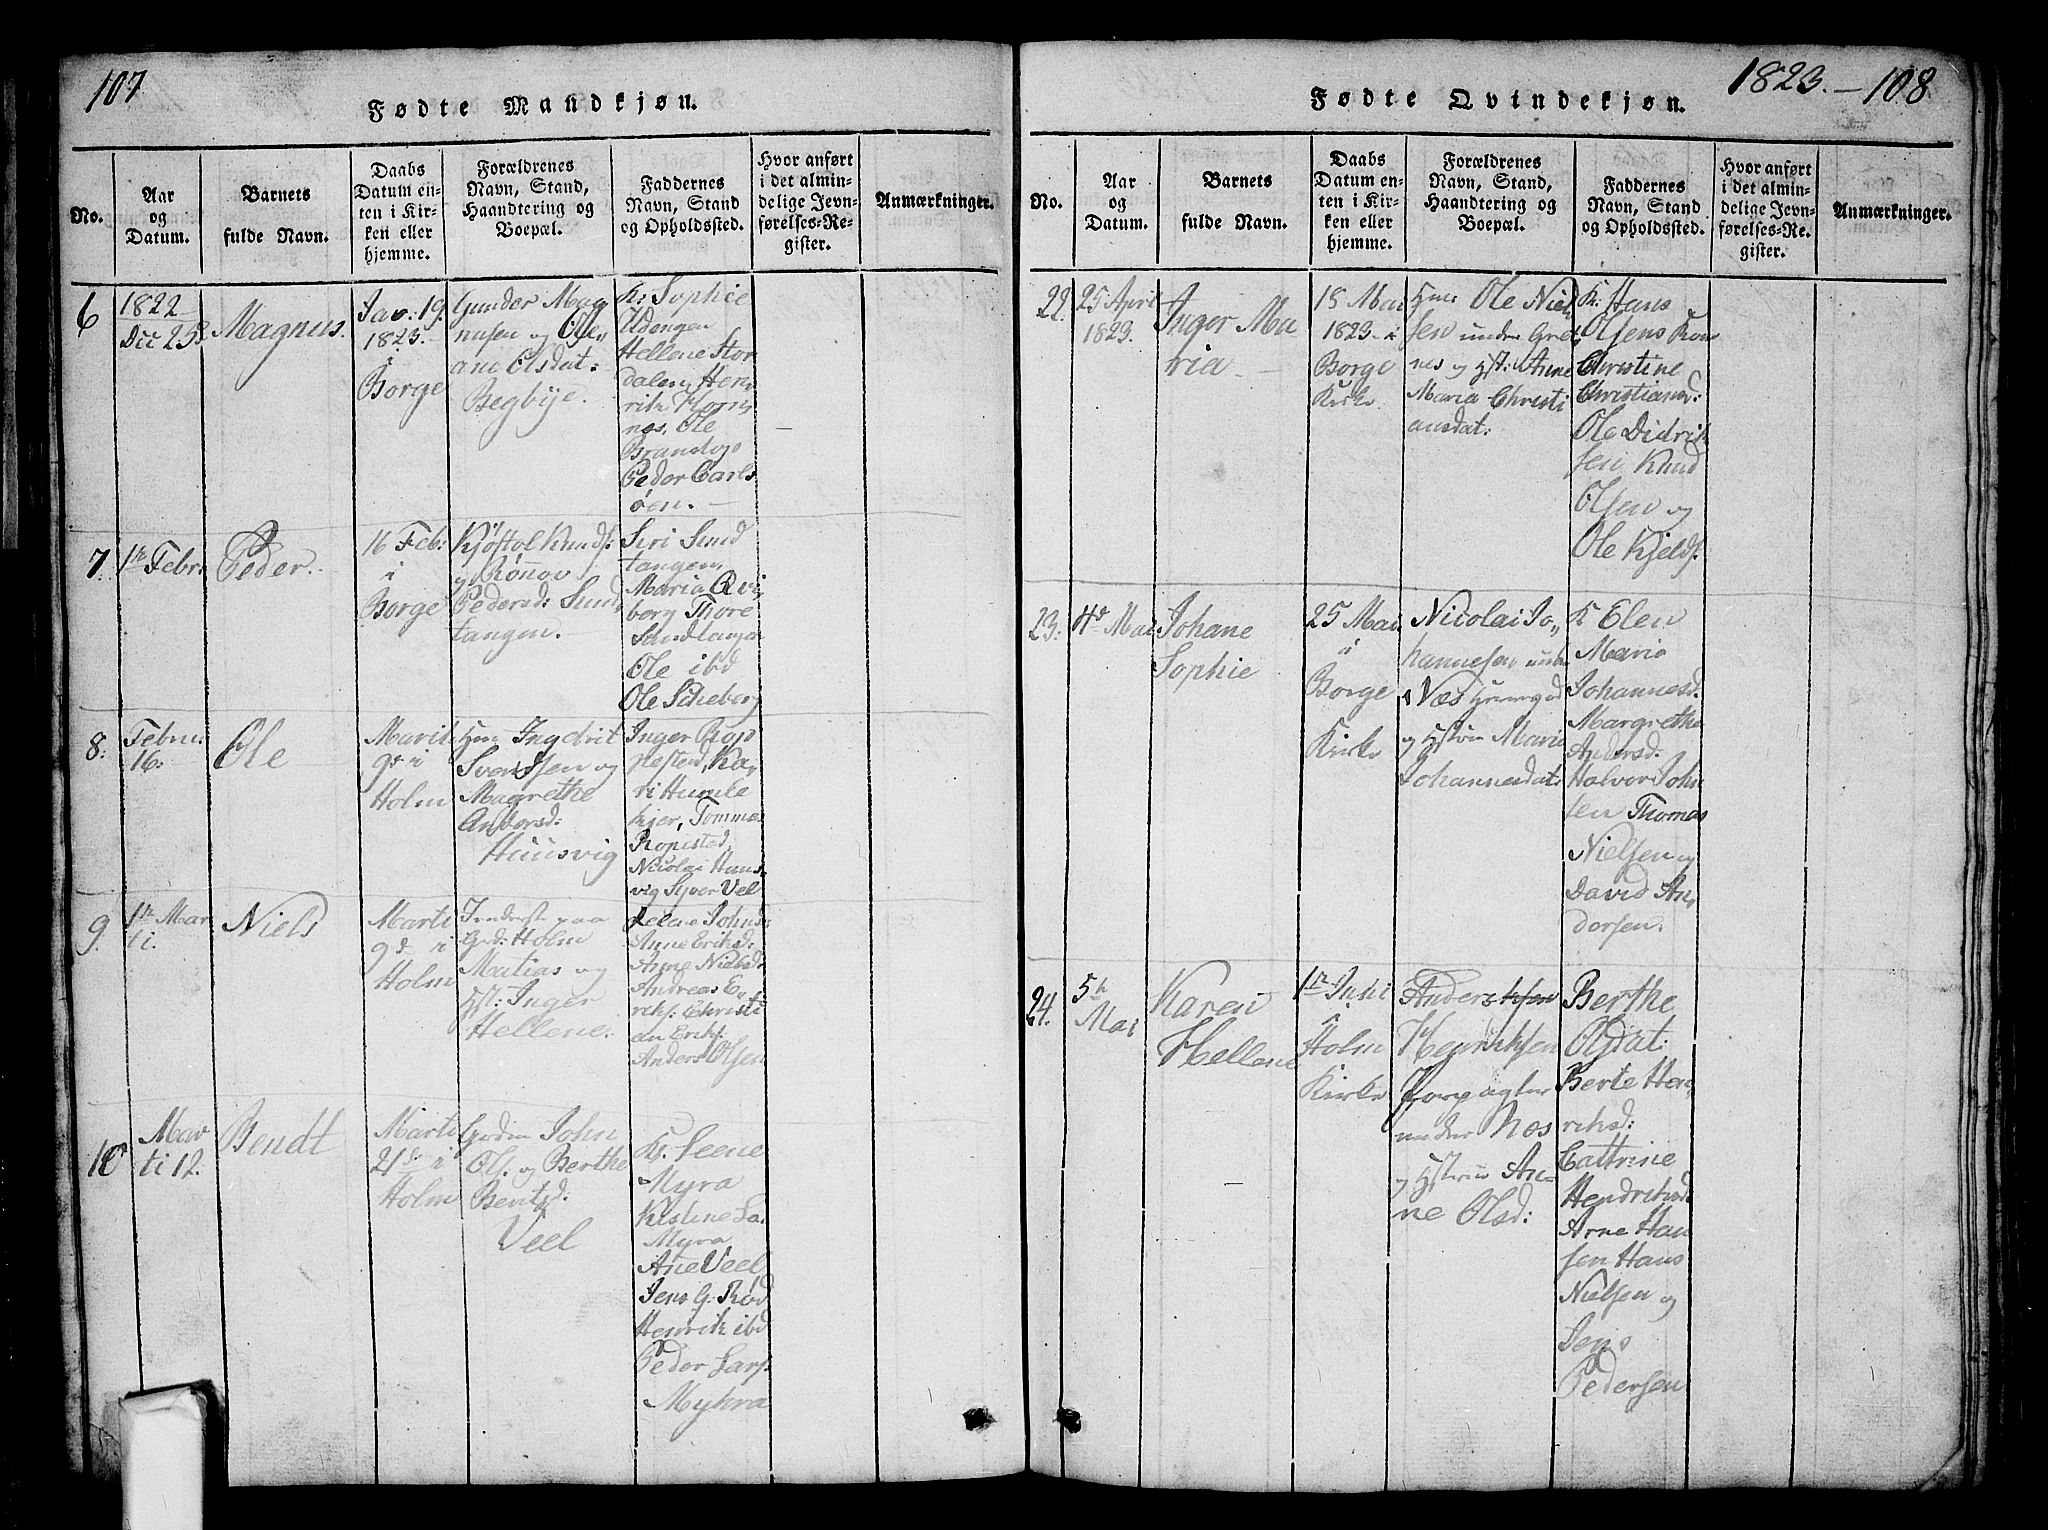 107
Fødte Mandkjøn.
No.
Aar
og
Datum.
Barnets
fulde Navn.
Daabs
Datum en-
ten i Kir-
ken eller
hjemme.
Forældrenes
Navn, Stand,
Haandtering og
Boepæl.
Faddernes
Navn, Stand
og Opholdssted.
Hvor anført
i det almin-
delige Jevn-
førelses-Re-
gister.
Anmærkninger.
6
1822
Dec 25
Magnus.
Jan: 19.
1823.
i
Borge
Gunder Mag
nusen og Ole,,
ane Elsdat:
Begbye.
K: Sophie
Udengen
Hellene Tor
dalen, Hen,,
rik Horn,,
næs, Ole
Branstop
Peder Carls
øen. —
7.
1te Febr.
Peder.
16 Feb:
i
Borge
Kjøstol Knuds:
og Rönnov
Pedersd: Sund,,
tangen. —
Siri Sund
tangen,
Maria Qvi,,
berg Thore
Sundtangen
Ole ibd
Ole Scheberg
8:
Febru:
16:
Ole
Marti
9de i
Holm
Hm: Ingebrit
Svendsen og
Magrethe
Anders d:
Huusvig
Inger Rop
pestad, Ka,,
ri Humle
kjer, Tommas
Ropestad,
Nicolai Huus
vig Syver Vel
9.
1te Mar
ti.
Niels
Marti
9d i
Holm
Inderste paa
Grd: Holm
Matias og
Hst: Inger
Hellene.
Helene Johnsd:
Anne Eriksd:
Anne Nielsd:
Andreas E,,
riks: Christi
an Eriks:
Anders Olsen
10
Mar
ti 12.
Bendt
Marti
21de i
Holm
Grdm John
Ol. og Berthe
Bentsd:
Veel
K: Leene
Myra
Kistene La.
Myra
Ane Veel
Jens G. Rød
Henrik ibd
Peder Lars:
Myhra
1823. — 108
Fødte Qvindekjøn.
No.
Aar
og
Datum.
Barnets
fulde Navn.
Daabs
Datum en-
ten i Kir-
ken eller
hjemme.
Forældrenes
Navn, Stand,
Haandtering og
Boepæl.
Faddernes
Navn, Stand
og Opholdssted.
Hvor anført
i det almin-
delige Jevn-
førelses-Re-
gister.
Anmærkninger.
22.
25 April
1823.
Inger Ma
ria —
15 Mai
1823 i
Borge
Kirke
Hm: Ole Niel,,
sen under Græ,,
nes og Hst: Anne
Maria Christi
ansdat:
K: Hans
Olsens Kone
Christine
Christiansd:
Ole Didrik
sen Knud
Olsen og
Ole Kjelds:
23:
4de Mai
Johane
Sophie
25 Mai
i
Borge
Kirke
Nicolai Jo,,
hannesen under
Næs
og Hstru Maria
Johannesdat:
K Elen
Maria
Johannesd:
Margrethe
Andersd:
Halvor John
sen Thomas
Nielsen og
David An,,
dersen.
24.
5te
Mai
Karen
Hellene
1te Juni
i
Holm
Kirke
Anders
Henriksen
Forpagter
under Næs
og Hstrue An,,
ne Olsd:
Berthe
Olsdat:
Berte Hen,,
riksd:
Cattrine
Hendriksd:
Arne Han
sen Hans
Nielsen og
Jens
Pedersen